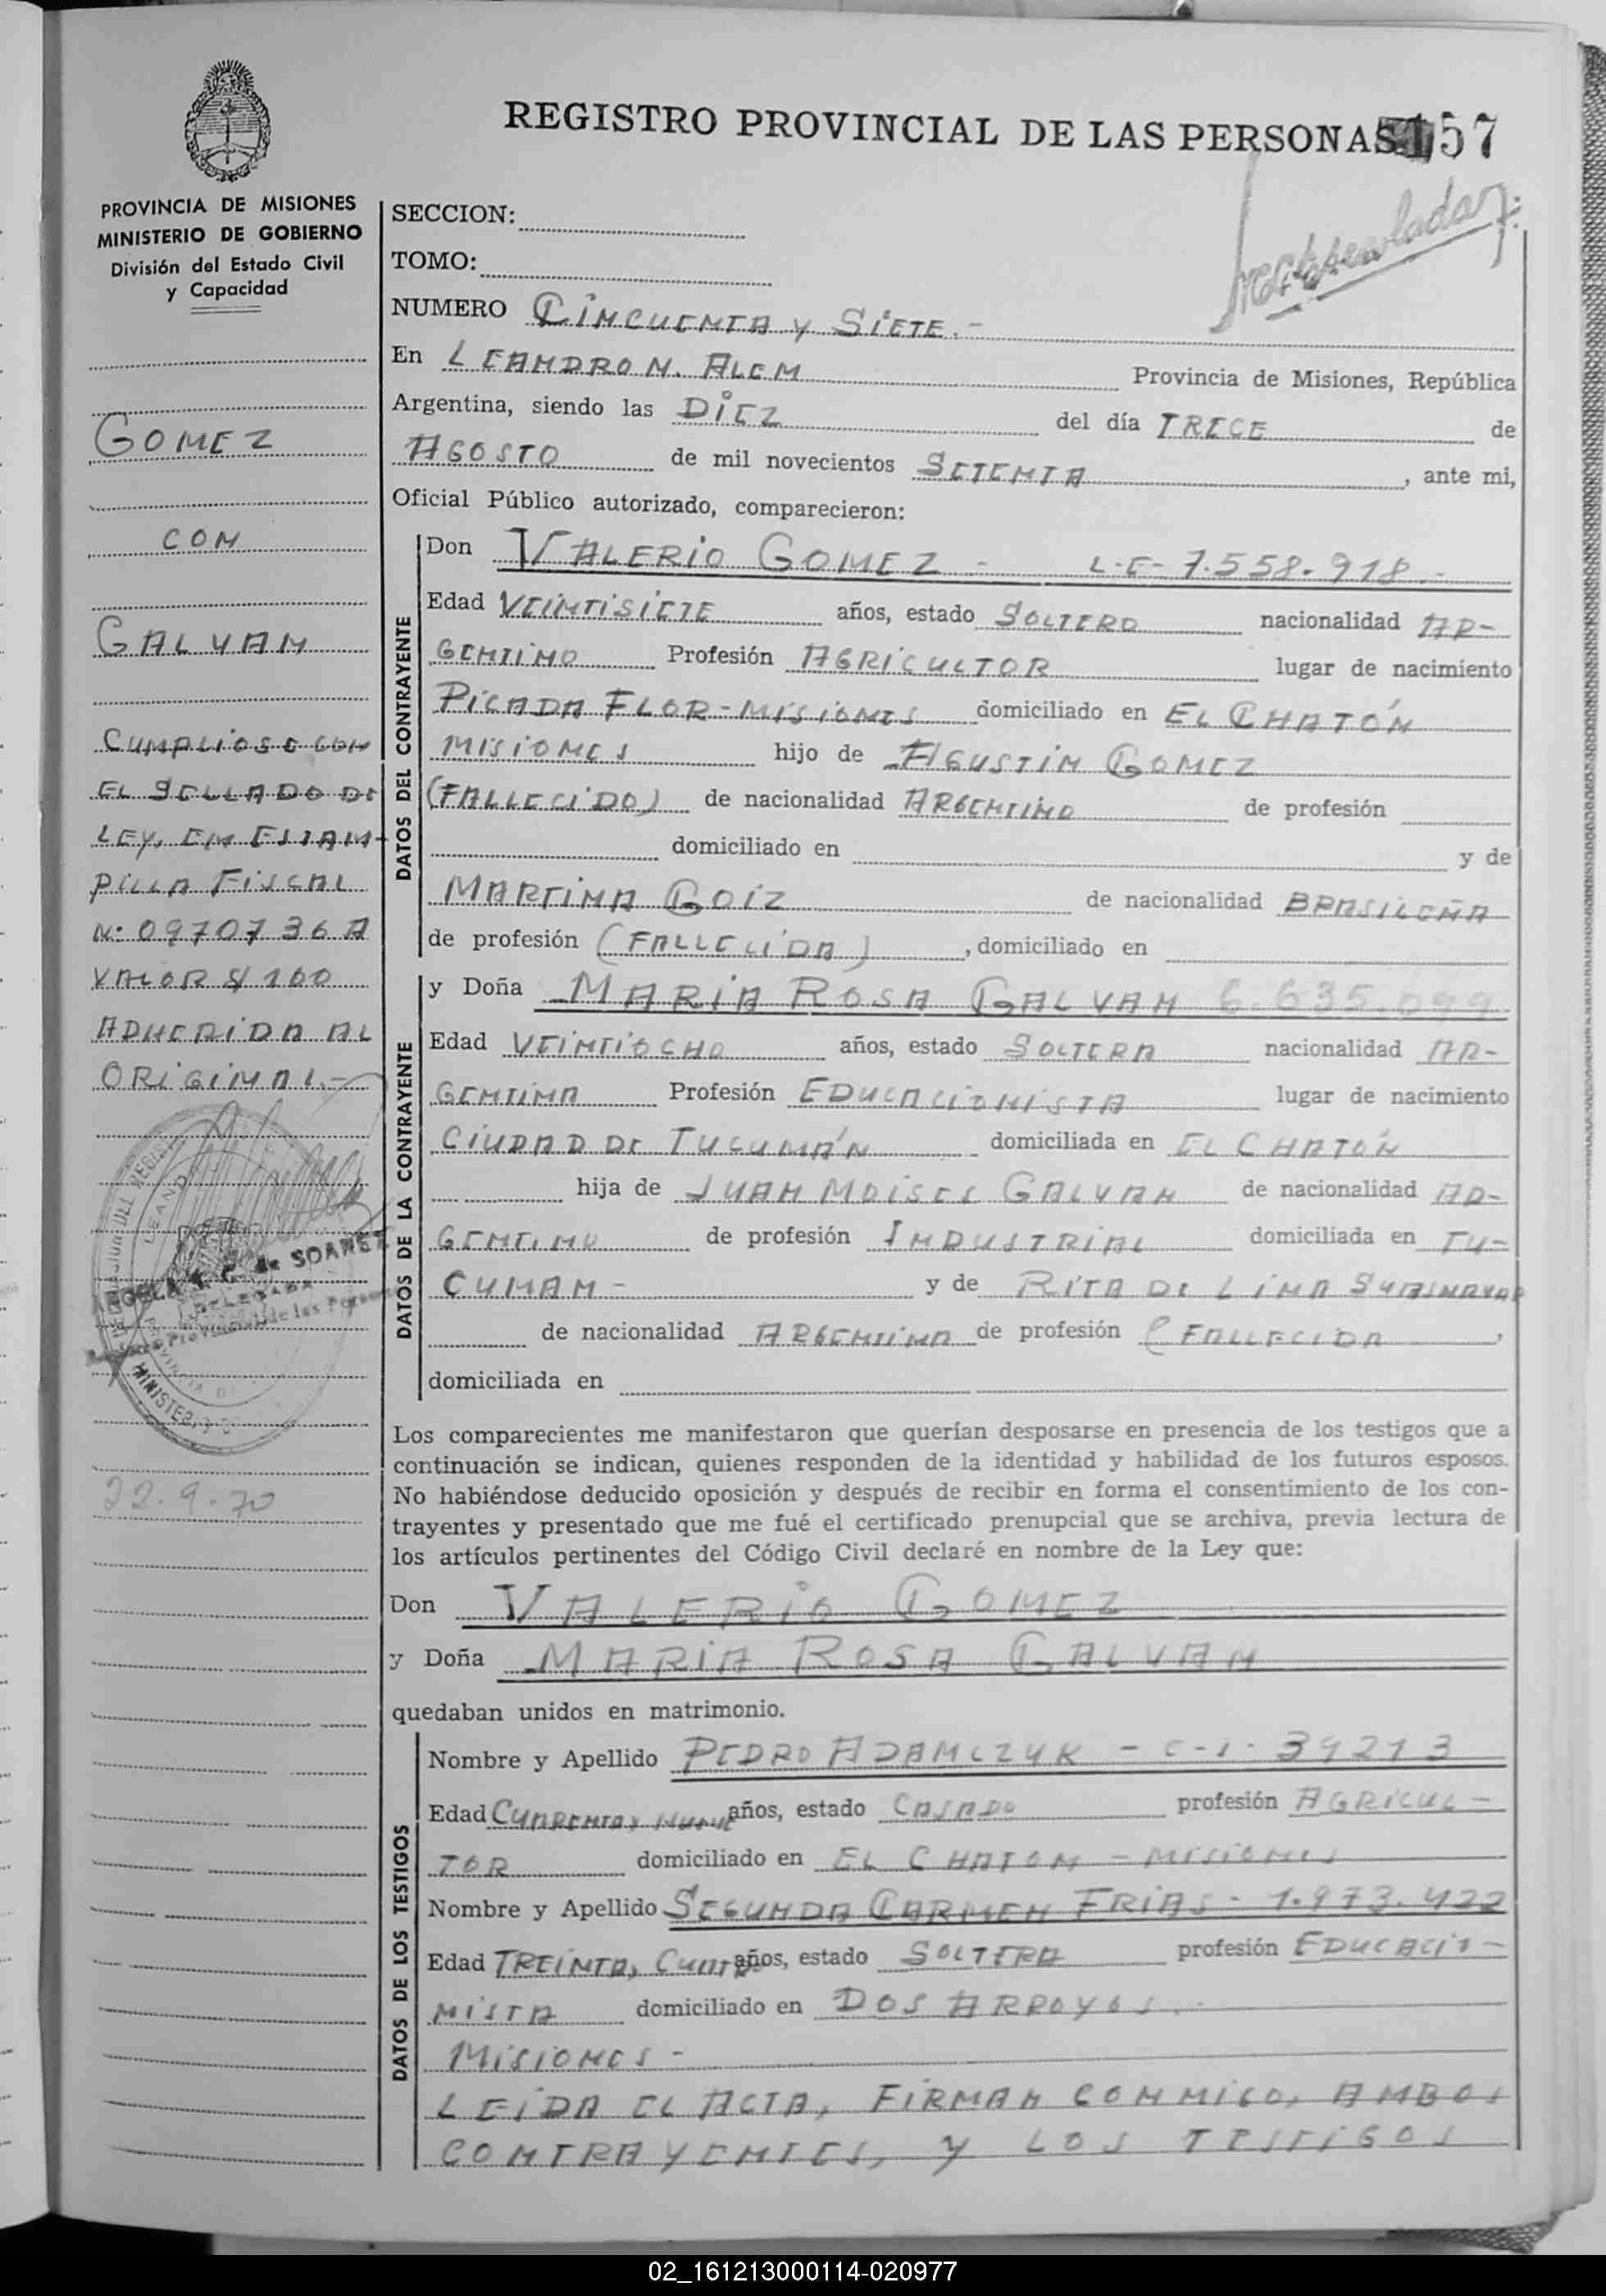 REGISTRO PROVINCIAL DE LAS PERSONAS 57
PROVINCIA DE MISIONES
MINISTERIO DE GOBIERNO
División del Estado Civil
y Capacidad
GOMEZ
CON
GALVAN
CUMPLIOSE CON
EL SELLADO DE
LEY, EN ESTAM-
PILLA FISCAL
N: 0970736A
VALOR $ 100
ADHERIDA AL
ORIGINAL.-
de SOAREZ
DELEGADA
22.9.70
SECCION:
TOMO:
NUMERO CINCUENTA Y SIETE.-
En LEANDRO N. ALEM Provincia de Misiones, República
Argentina, siendo las DIEZ del día TRECE de
AGOSTO de mil novecientos SETENTA, ante mi,
Oficial Público autorizado, comparecieron:
DATOS DEL CONTRAYENTE
Don VALERIO GOMEZ - L.E- 7.558.918.-
Edad VEINTISIETE años, estado SOLTERO nacionalidad AR-
GENTINO Profesión AGRICULTOR lugar de nacimiento
PICADA FLOR-MISIONES domiciliado en EL CHATÓN
MISIONES hijo de AGUSTIN GOMEZ
(FALLECIDO) de nacionalidad ARGENTINO de profesión
domiciliado en y de
MARTINA GOIZ de nacionalidad BRASILEÑA
de profesión (FALLECIDA), domiciliado en
DATOS DE LA CONTRAYENTE
y Doña MARIA ROSA GALVAN 6.635.099
Edad VEINTIOCHO años, estado SOLTERA nacionalidad AR-
GENTINA Profesión EDUCACIONISTA lugar de nacimiento
CIUDAD DE TUCUMÁN domiciliada en EL CHATÓN
hija de JUAN MOISES GALVAN de nacionalidad AR-
GENTINO de profesión INDUSTRIAL domiciliada en TU-
CUMAN- y de RITA DE LIMA
de nacionalidad ARGENTINA de profesión (FALLECIDA,
domiciliada en
Los comparecientes me manifestaron que querían desposarse en presencia de los testigos que a
continuación se indican, quienes responden de la identidad y habilidad de los futuros esposos.
No habiéndose deducido oposición y después de recibir en forma el consentimiento de los con-
trayentes y presentado que me fué el certificado prenupcial que se archiva, previa lectura de
los artículos pertinentes del Código Civil declaré en nombre de la Ley que:
Don VALERIO GOMEZ
y Doña MARIA ROSA GALVAN
quedaban unidos en matrimonio.
DATOS DE LOS TESTIGOS
Nombre y Apellido PEDRO ADAMCZUK - C-I- 34213
Edad CUARENTA Y NUEVE años, estado CASADO profesión AGRICUL-
TOR domiciliado en EL CHATON - MISIONES
Nombre y Apellido SEGUNDA CARMEN FRIAS - 1.973.422
Edad TREINTA y CUATRO años, estado SOLTERA profesión EDUCACIO-
NISTA domiciliado en DOS ARROYOS.-
MISIONES-
LEIDA EL ACTA, FIRMAN CONMIGO, AMBOS
CONTRAYENTES, Y LOS TESTIGOS
02_161213000114-020977